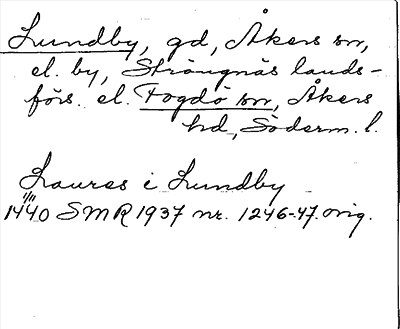 Lundby, gd, Åkers sn,
el. by, Strängnäs lands-
förs. el. Fogdö sn, Åkers
hd, Söderm. l.
Laures i Lundby
1/11
1440 SMR 1937 nr. 1246-47. orig.